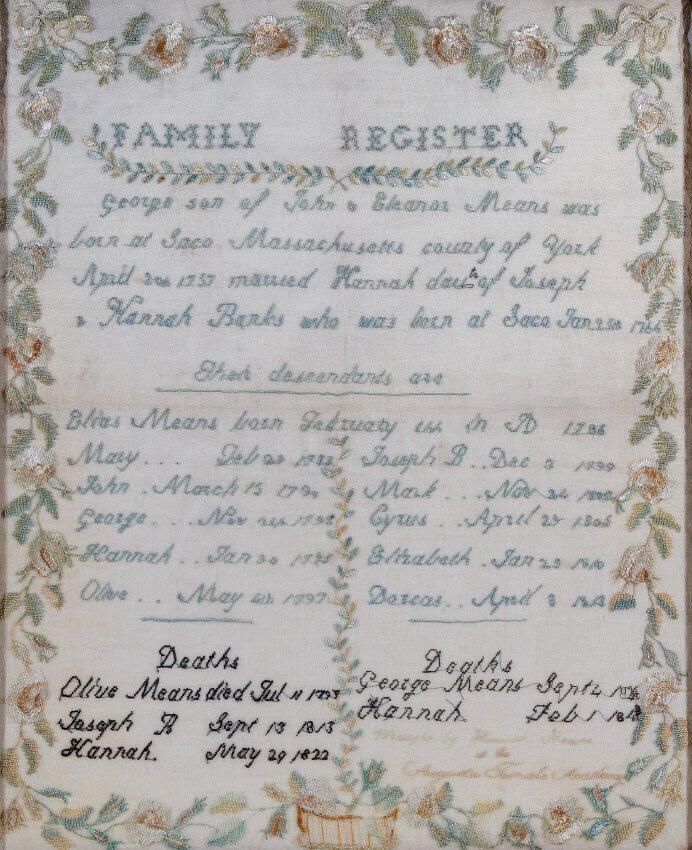 FAMILY REGISTER
George son of John & Eleanor Means was
born at Saco Massachusetts county of York
April 1757 married Hannah daut of Joseph
& Hannah Banks who was born at Saco Jan
Their descendants are
Elias Means born February in AD 1786
Mary... Feb
John . March 15
George... Nov
Hannah... Jan 30
Olive... May 1797
Joseph B .. Dec 3
Mark ... Nov 24
Cyrus ... April 27
Elizabeth . Jan 23 1810
Dorcas.. April 3
Deaths
Olive Means died Jul 11
Joseph B Sept 13 1815
Hannah. May 29 1822
Deaths
George Means Sept 4
Hannah Feb 1
Wrought by Hannah Means
at the
Augusta Female Academy